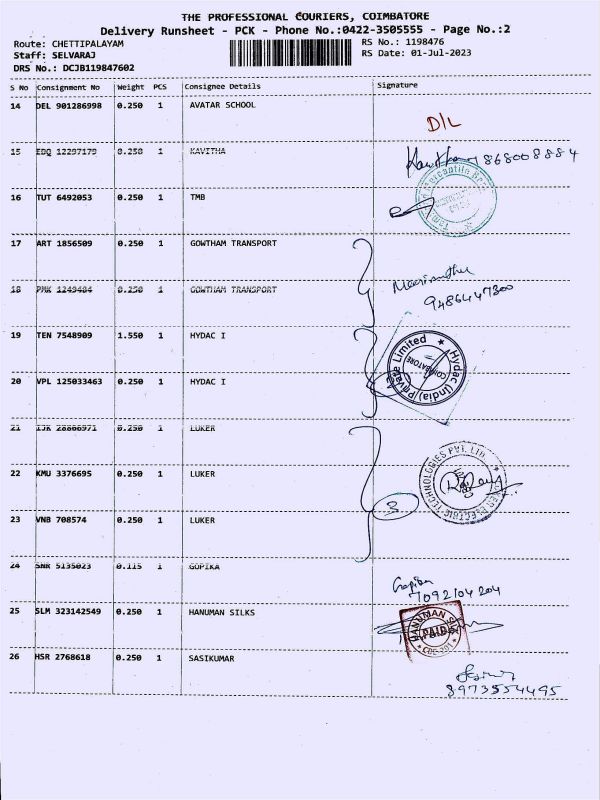 THE PROFESSIONAL COURIERS, COIMBATORE
Delivery Runsheet - PCK - Phone No.:0422-3505555 - Page No.:2
Route: CHETTIPALAYAM
RS No.: 1198476
Staff: SELVARAJ
RS Date: 01-Jul-2023
DRS No.: DCJB119847602
S No Consignment No Weight PCS Consignee Details Signature
14 DEL 901286998 0.250 1 AVATAR SCHOOL
D/L
15 EDQ 12297179 0.250 1 KAVITHA
8680088884
16 TUT 6492053 0.250 1 TMB
17 ART 1856509 0.250 1 GOWTHAM TRANSPORT
18 PMK 1249484 0.250 1 GOWTHAM TRANSPORT
9486447300
19 TEN 7548909 1.550 1 HYDAC I
Hydac (India) Private Limited ★
COIMBATORE
20 VPL 125033463 0.250 1 HYDAC I
21 IJK 28806971 0.250 1 LUKER
22 KMU 3376695 0.250 1 LUKER
LUKER ELECTRIC TECHNOLOGIES PVT. LTD.
3
23 VNB 708574 0.250 1 LUKER
24 SNR 5135023 0.115 1 GOPIKA
Gopika
7092104204
25 SLM 323142549 0.250 1 HANUMAN SILKS
HANUMAN SILKS
PAID
26 HSR 2768618 0.250 1 SASIKUMAR
8973554495